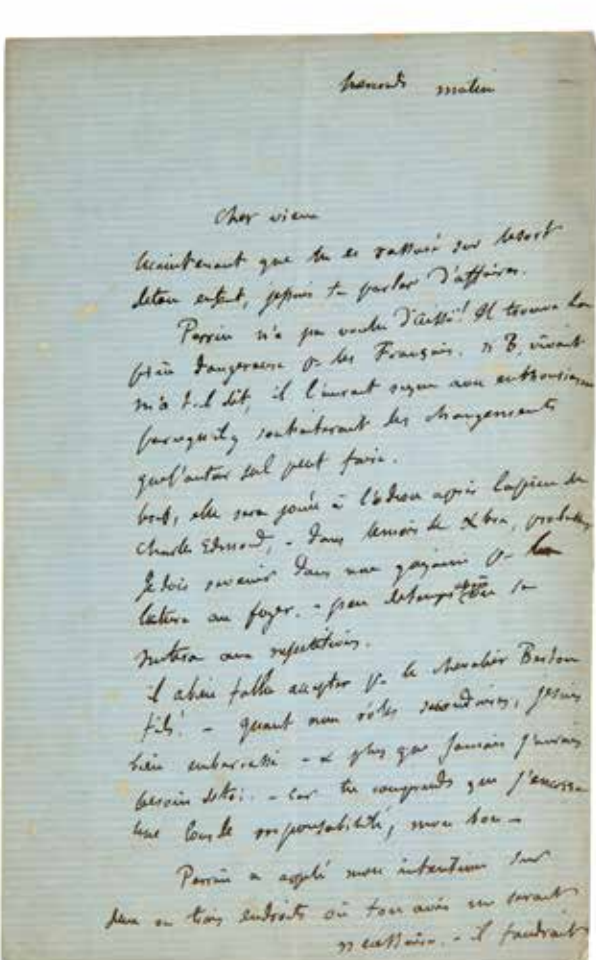 matin
Cher vieux
Maintenant que tu es rassuré sur le sort
de ton enfant, je puis te parler d'affaires.
Perrin n'a pas voulu d'Aïssé! Il trouve la
pièce dangereuse pr les Français. si B, vivait
m'a-t-il dit, il l'aurait reçue avec enthousiasme
parce qu'il y souhaiterait des changements
que l'auteur seul peut faire.
bref, elle sera jouée à l'odéon après la pièce de
Charles Edmond, - dans le mois de Xbre,
Je dois revenir dans une pr la
lecture au foyer. - peu de temps se
mettra aux répétitions.
il a bien fallu accepter pr le chevalier Berton
fils! - quant aux rôles secondaires, je suis
bien embarrassé - & plus que jamais j'aurais
besoin de toi. - Car tu comprends que j'encours
une lourde responsabilité, mon bon -
Perrin a applé mon intention sur
deux ou trois endroits où ton avis me serait
nécessaire. - il faudrait